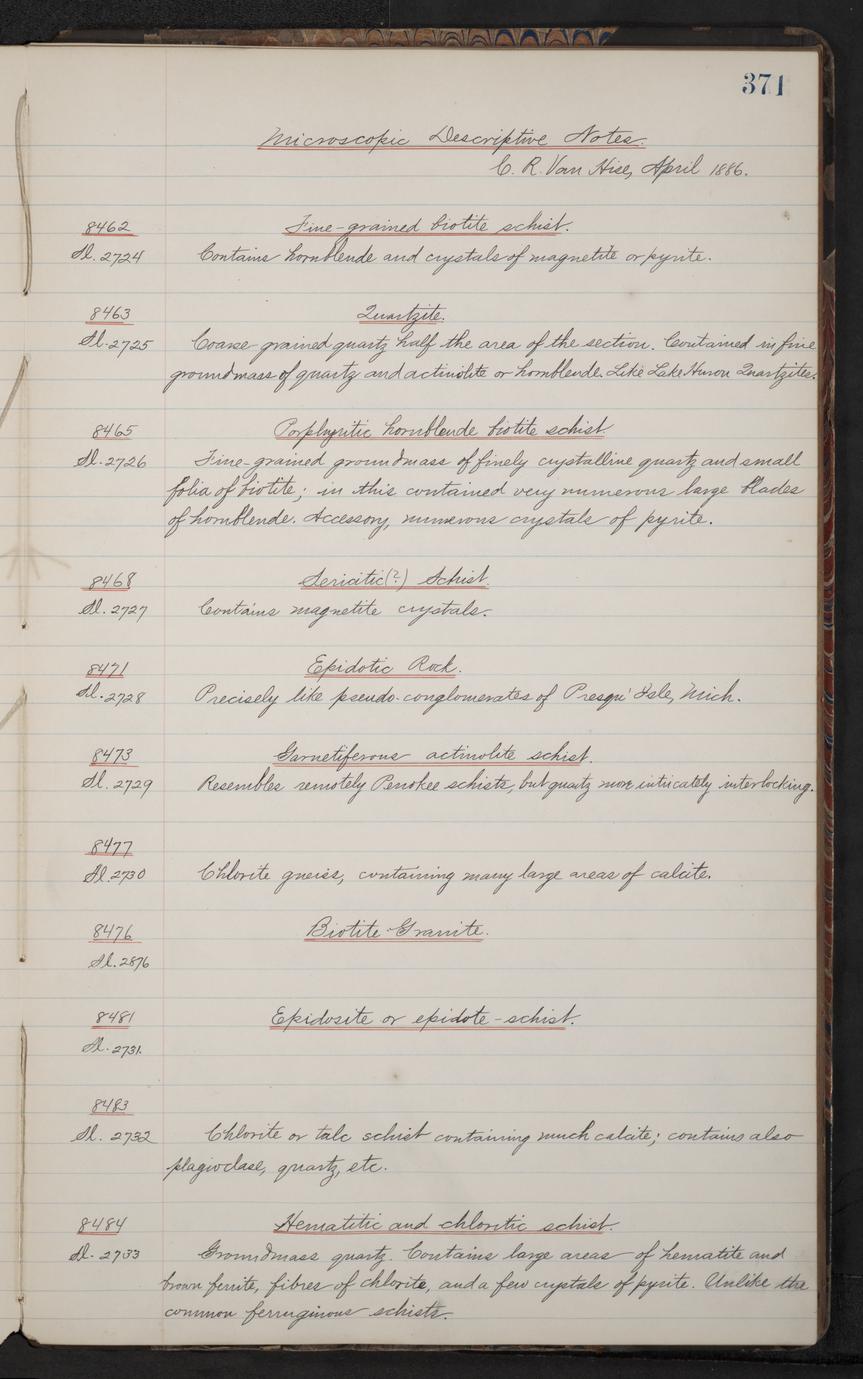 371
Microscopic Descriptive Notes.
C. R. Van Hise, April 1886.
8462 Fine-grained biotite schist.
Sl. 2724 Contains hornblende and crystals of magnetite or pyrite.
8463 Quartzite.
Sl. 2725 Coarse grained quartz half the area of the section. Contained in fine
groundmass of quartz and actinolite or hornblende. Like Lake Huron Quartzites.
8465 Porphyritic hornblende biotite schist
Sl. 2726 Fine-grained groundmass of finely crystalline quartz and small
folia of biotite; in this contained very numerous large blades
of hornblende. Accessory, numerous crystals of pyrite.
8468 Sericitic(?) Schist.
Sl. 2727 Contains magnetite crystals.
8471 Epidotic Rock.
Sl. 2728 Precisely like pseudo-conglomerates of Presqu' Isle, Mich.
8473 Garnetiferous actinolite schist.
Sl. 2729 Resembles remotely Penokee schists, but quartz more intricately interlocking.
8477
Sl. 2730 Chlorite gneiss, containing many large areas of calcite.
8476 Biotite-Granite.
Sl. 2876
8481 Epidosite or epidote-schist.
Sl. 2731.
8483
Sl. 2732 Chlorite or talc schist containing much calcite; contains also
plagioclase, quartz, etc.
8484 Hematitic and chloritic schist.
Sl. 2733 Groundmass quartz. Contains large areas of hematite and
brown ferrite, fibres of chlorite, and a few crystals of pyrite. Unlike the
common ferruginous schists.